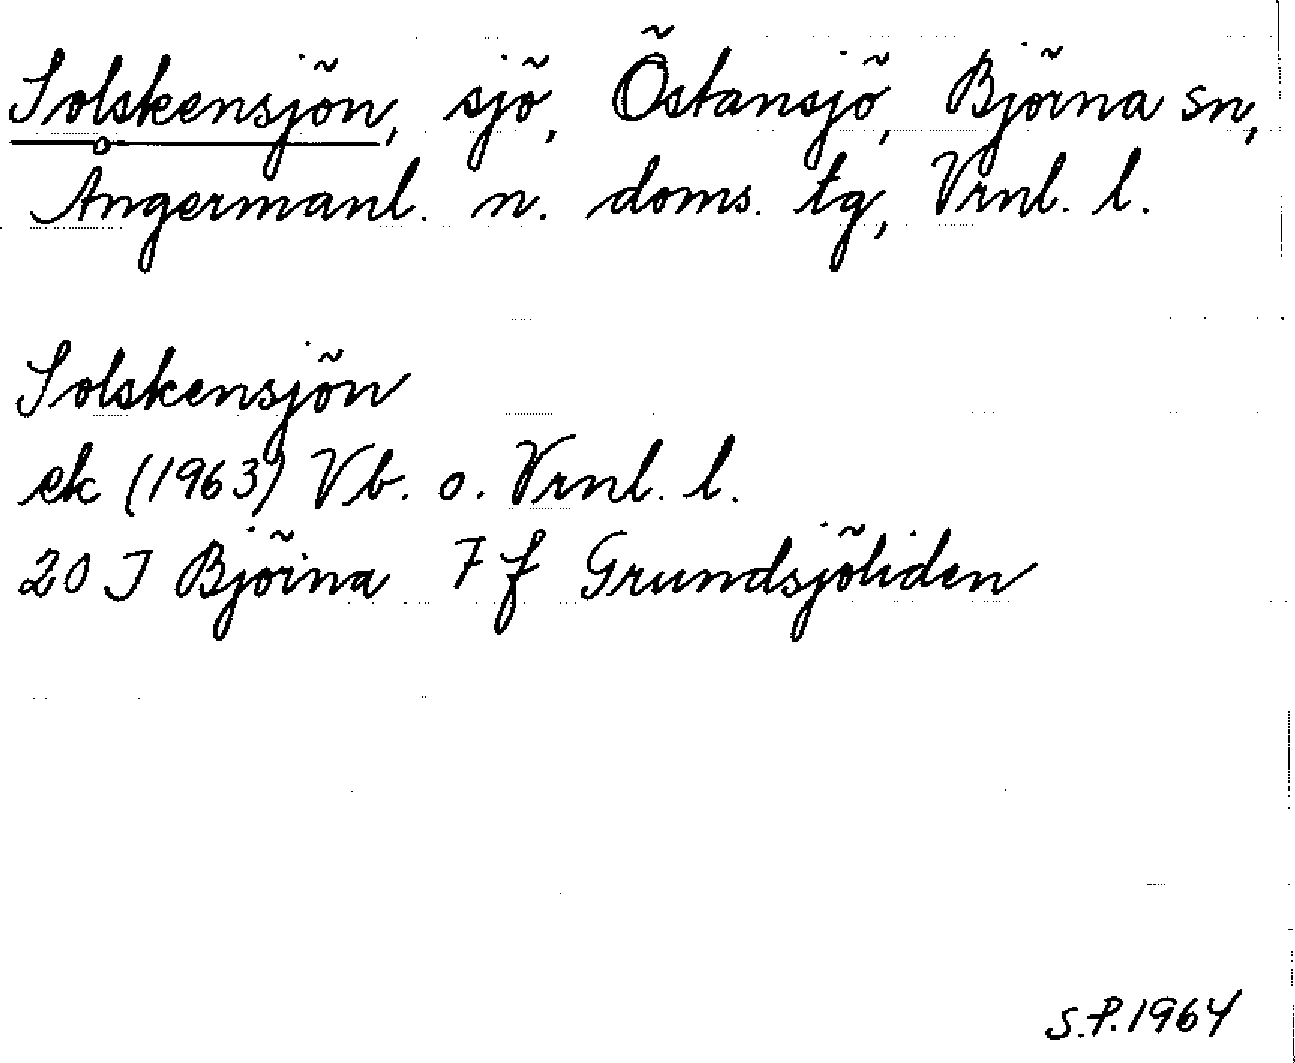 Solskensjön, sjö, Östansjö, Björna sn,
Ångermanl. n. doms. tg, Vrnl. l.
Solskensjön
ek (1963) Vb. o. Vrnl. l.
20 I Björna 7 f Grundsjöliden
S.P. 1964